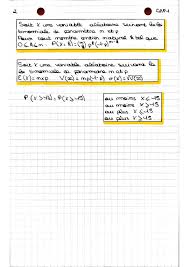 2
Soit X une variable aléatoire suivant la loi
binomiale de paramètre n et p.
Pour tout nombre entier naturel k tel que
0 ≤ k ≤ n : P(X=k) = (n k) p^k (1-p)^n-k
Soit X une variable aléatoire suivant la
loi binomiale de paramètre n et p.
E(X) = n×p V(X) = np(1-p) σ(X) = √V(X)
P(X > -15) = P(X ≥ -15)
au moins
au moins
au plus
au plus